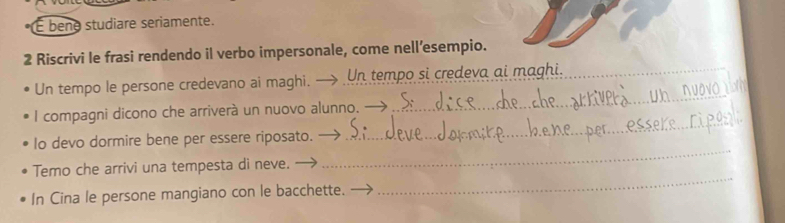 • È bene studiare seriamente.
2 Riscrivi le frasi rendendo il verbo impersonale, come nell'esempio.
• Un tempo le persone credevano ai maghi. → Un tempo si credeva ai maghi.
• I compagni dicono che arriverà un nuovo alunno. → Si dice che che arriverà un nuovo
• Io devo dormire bene per essere riposato. → Si deve dormire bene per essere
• Temo che arrivi una tempesta di neve. →
• In Cina le persone mangiano con le bacchette. →